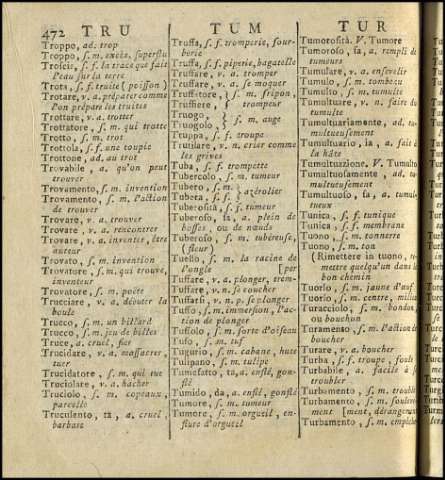 472 TRU TUM TUR
Troppo, ad. trop
Troppo, s. m. excès, superflu
Troscis, s. f. la trace que fait
l'eau sur la terre
Trota, s. f. truite (poisson)
Trotare, v. a. préparer comme
l'on prépare les truites
Trottare, v. a. trotter
Trottatore, s. m. qui trotte
Trotto, s. m. trot
Trottola, s. f. une toupie
Trottone, ad. au trot
Trovabile, a. qu'on peut
trouver
Trovamento, s. m. invention
Trovamento, s. m. l'action
de trouver
Trovare, v. a. trouver
Trovare, v. a. rencontrer
Trovare, v. a. inventer, être
auteur
Trovato, s. m. invention
Trovatore, s. m. qui trouve,
inventeur
Trovatore, s. m. poète
Trucciare, v. a. débuter la
boule
Trucco, s. m. un billard
Trucco, s. m. jeu de billes
Truce, a. cruel, fier
Trucidare, v. a. massacrer,
tuer
Trucidatore, s. m. qui tue
Truciolare, v. a. hacher
Truciolo, s. m. copeaux,
parcelle
Truculento, ta, a. cruel,
barbare
Truffa, s. f. tromperie, four-
berie
Truffa, s. f. piperie, bagatelle
Truffare, v. a. tromper
Truffare, v. a. se moquer
Truffatore, } s. m. fripon,
Truffiere, } trompeur
Truogo, } s. m. auge
Truogolo, }
Truppa, s. f. troupe
Trutilare, v. n. crier comme
les grives
Tuba, s. f. trompette
Tubercolo, s. m. tumeur
Tubero, s. m. }
Tubera, s. f. } azérolier
Tuberosità, s. f. tumeur
Tuberoso, sa, a. plein de
bosses, ou de nœuds
Tuberoso, s. m. tubéreuse,
(fleur)
Tuello, s. m. la racine de
l'ongle [per
Tuffare, v. a. plonger, trem-
Tuffare, v. n. se coucher
Tuffarsi, v. n. p. se plonger
Tuffo, s. m. immersion, l'ac-
tion de plonger
Tuffolo, s. m. sorte d'oiseau
Tufo, s. m. tuf
Tugurio, s. m. cabane, hute
Tulipano, s. m. tulipe
Tumefatto, ta, a. enflé, gon-
flé
Tumido, da, a. enflé, gonflé
Tumore, s. m. tumeur
Tumore, s. m. orgueil, en-
flure d'orgueil
Tumorosità. V. Tumore
Tumoroso, sa, a. rempli de
tumeurs
Tumulare, v. a. ensevelir
Tumulo, s. m. tombeau
Tumulto, s. m. tumulte
Tumultuare, v. n. faire du
tumulte
Tumultuariamente, ad. tu-
multueusement
Tumultuario, ia, a. fait à
la hâte
Tumultuazione, V. Tumulto
Tumultuosamente, ad. tu-
multueusement
Tumultuoso, sa, a. tumul-
tueux
Tunica, s. f. tunique
Tunica, s. f. membrane
Tuono, s. m. tonnerre
Tuono, s. m. ton
(Rimettere in tuono, re-
mettre quelqu'un dans le
bon chemin
Tuorlo, s. m. jaune d'œuf
Tuorlo, s. m. centre, milieu
Turacciolo, s. m. bondon,
ou bouchon
Turamento, s. m. l'action de
boucher
Turare, v. a. boucher
Turba, s. f. troupe, foule
Turbabile, a. facile à se
troubler
Turbamento, s. m. trouble
Turbamento, s. m. soulève-
ment [ment, dérangement
Turbamento, s. m. empêche-